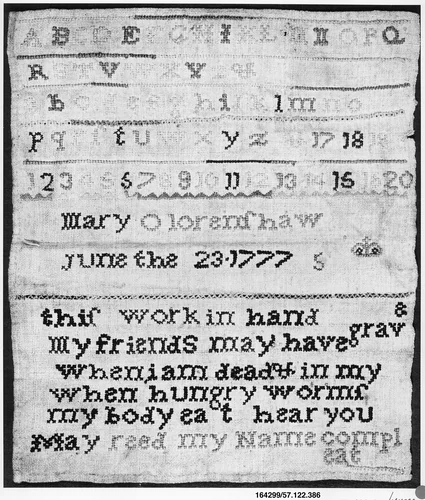 A B C D E F G H I K L M N O P Q
R S T V W X Y Z &
a b c d e f g h i k l m n o
p q r s t u v w x y z 17 18
1 2 3 4 5 6 7 8 9 10 11 12 13 14 15 16 18 20
Mary O lorenſhaw
June the 23·1777 S
thiſ work in hand &
my friends may have grav
when i am dead & in my
when hungry wormſ
my body eat hear you
May reed my Name compl
eat
164299/57.122.386